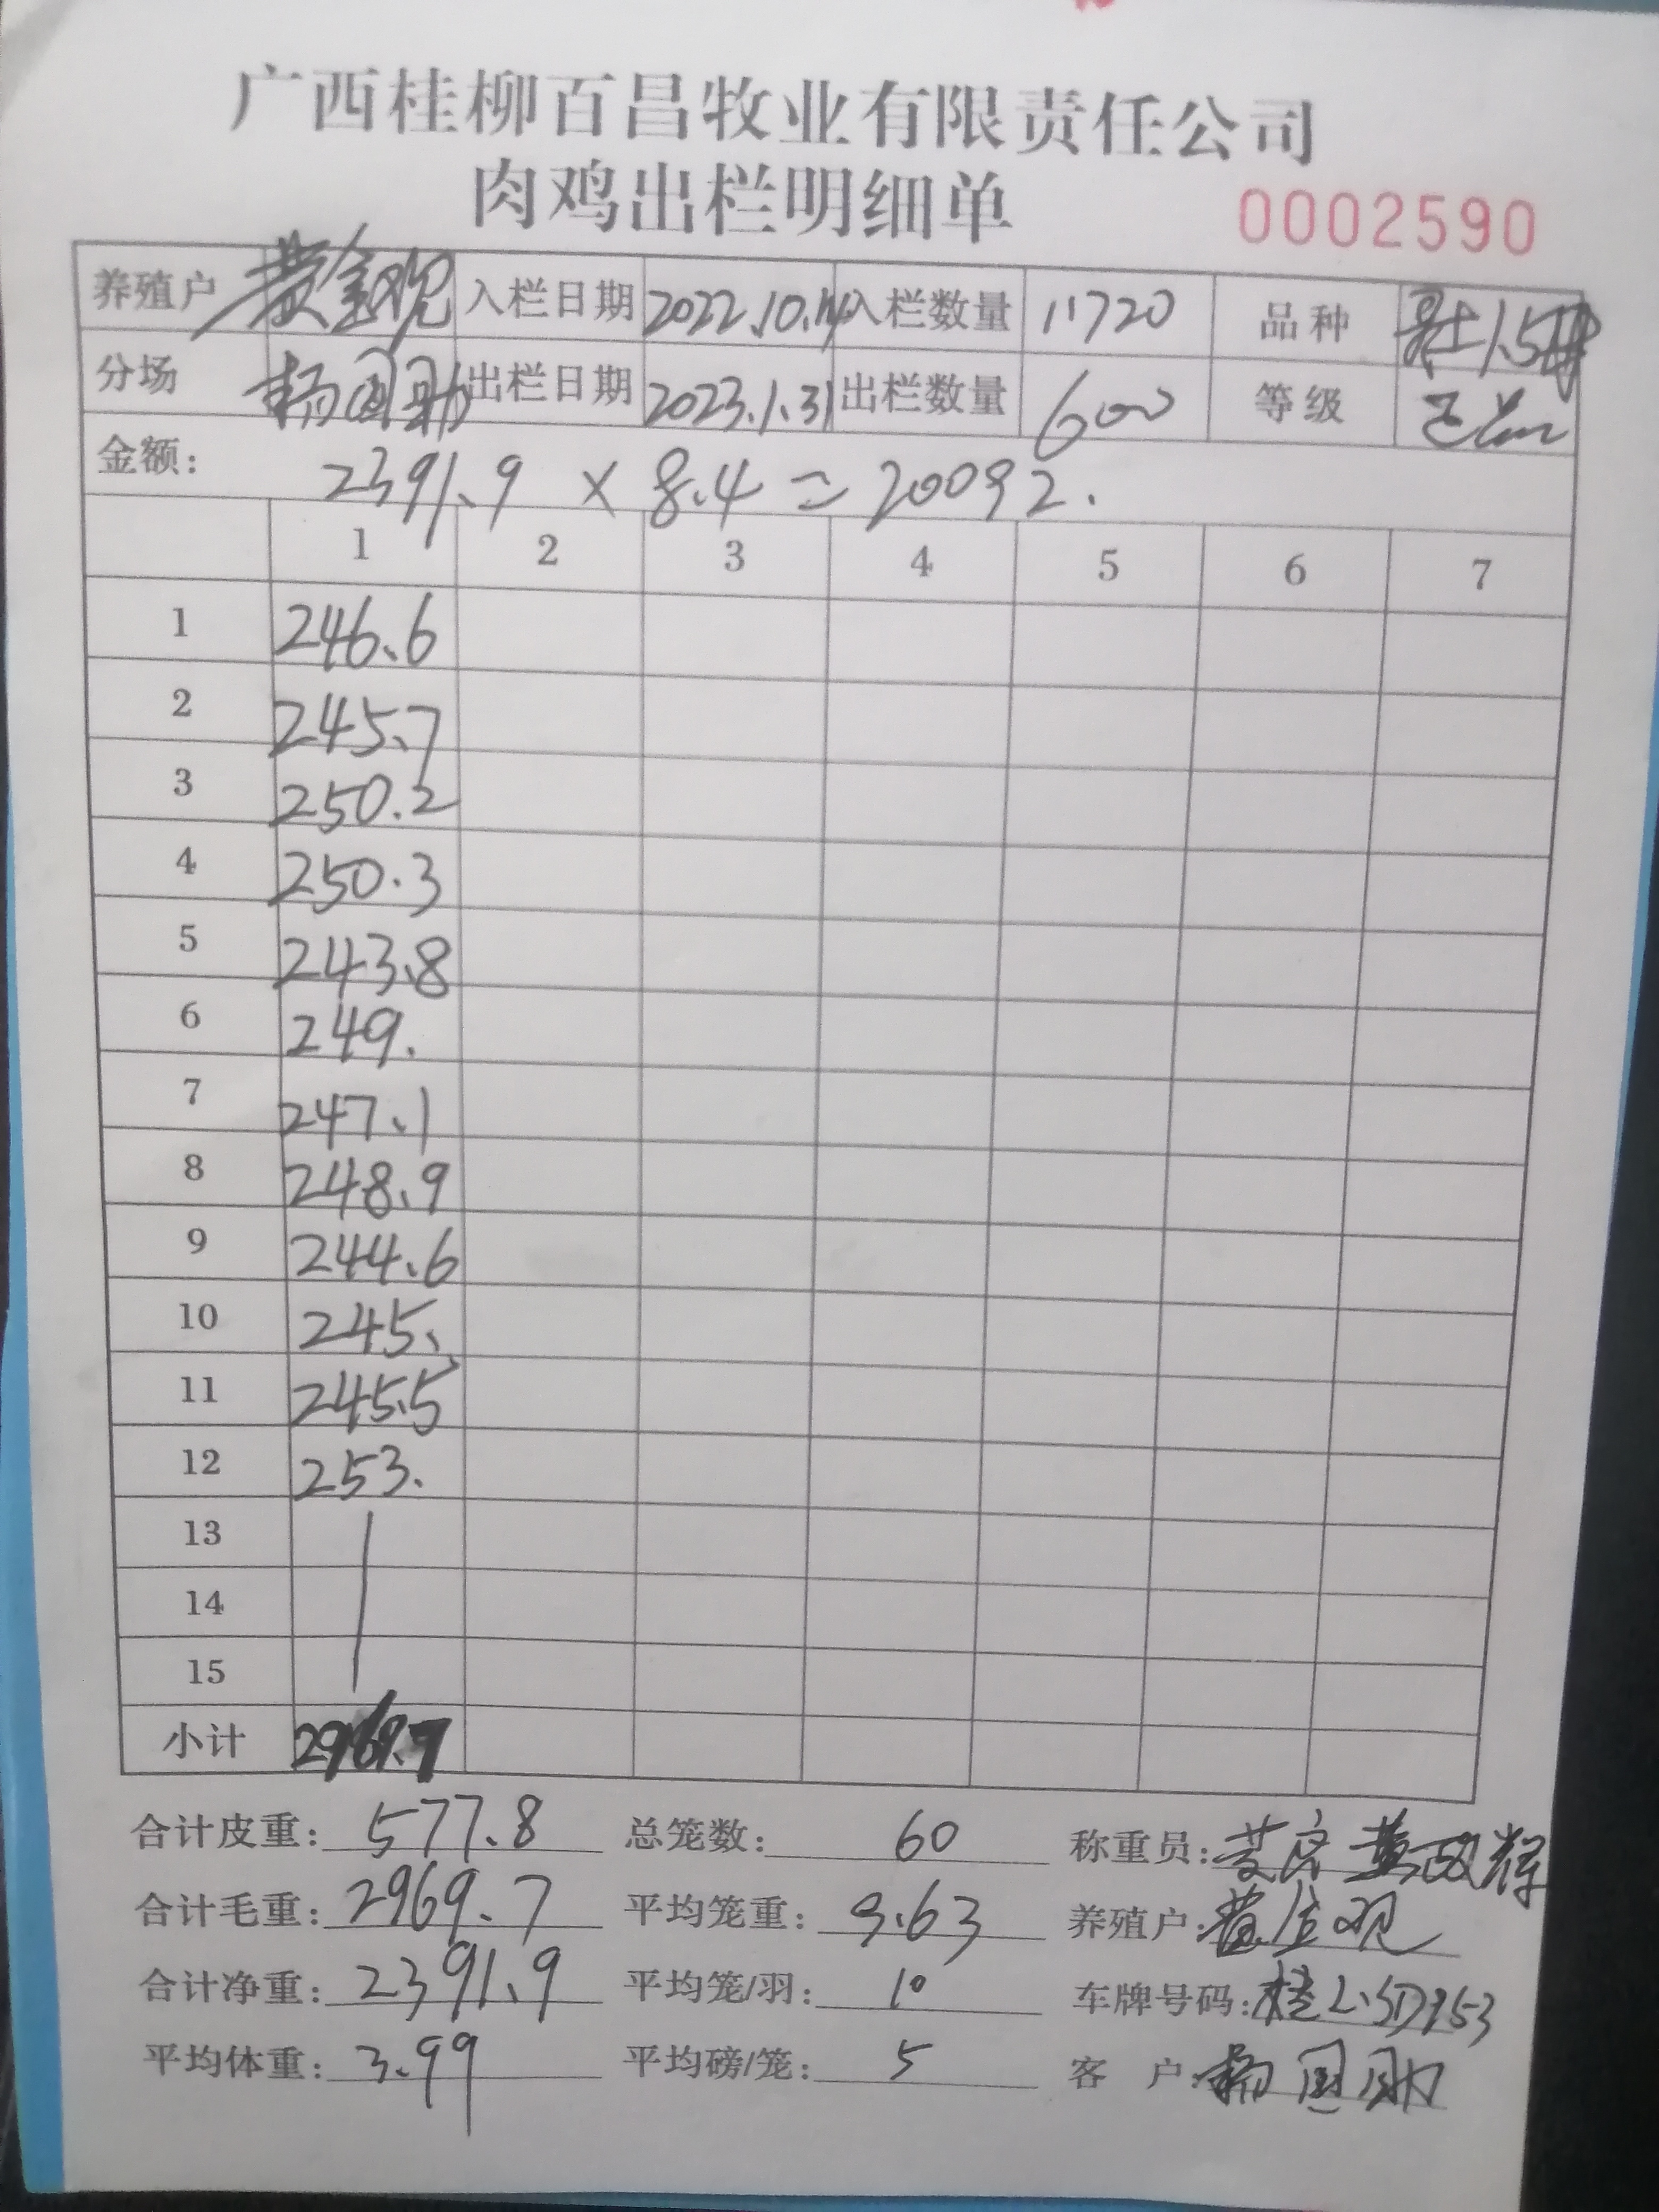 广西桂柳百昌牧业有限责任公司
肉鸡出栏明细单 0002590
养殖户 黄金观 入栏日期 2022.10.14 入栏数量 11720 品种
分场 杨国助 出栏日期 2023.1.31 出栏数量 600 等级
金额: 2391.9 × 8.4 = 20092.
1 2 3 4 5 6 7
1 246.6
2 245.7
3 250.2
4 250.3
5 243.8
6 249.
7 247.1
8 248.9
9 244.6
10 245.
11 245.5
12 253.
13
14
15
小计 2969.7
合计皮重: 577.8 总笼数: 60 称重员:
合计毛重: 2969.7 平均笼重: 9.63 养殖户: 黄金观
合计净重: 2391.9 平均笼/羽: 10 车牌号码:
平均体重: 3.99 平均磅/笼: 5 客 户: 杨国助